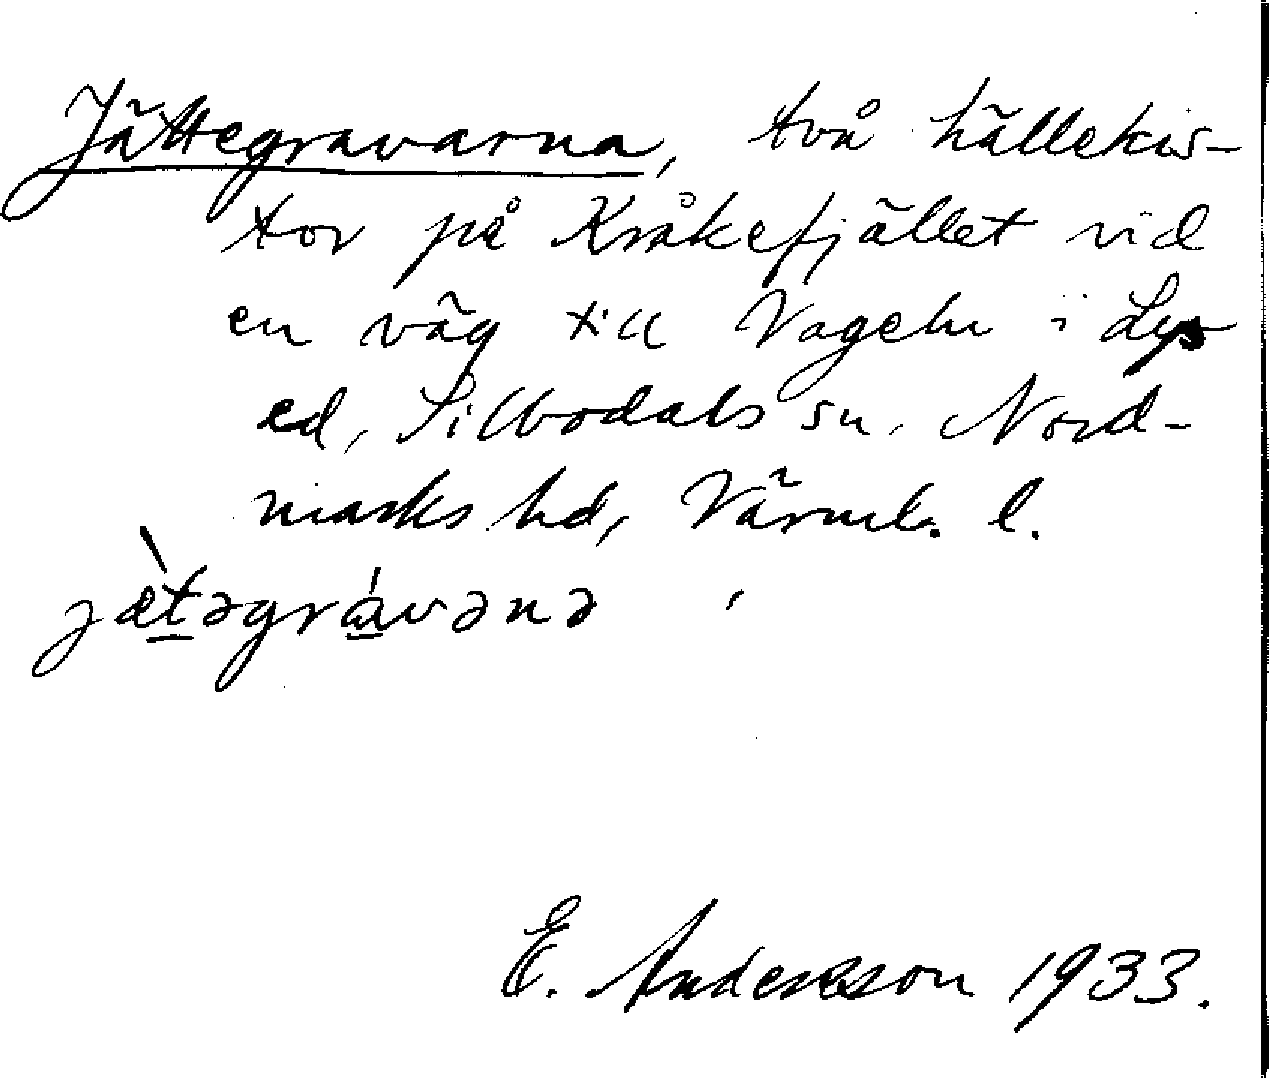 Jättegravarna, två hällekis-
tor på Kråkefjället vid
en väg till Vageln i Lys
ed, Silbodals sn, Nord-
marks hd, Värml. l.
jæ̀təgrávənə
E. Andersson 1933.